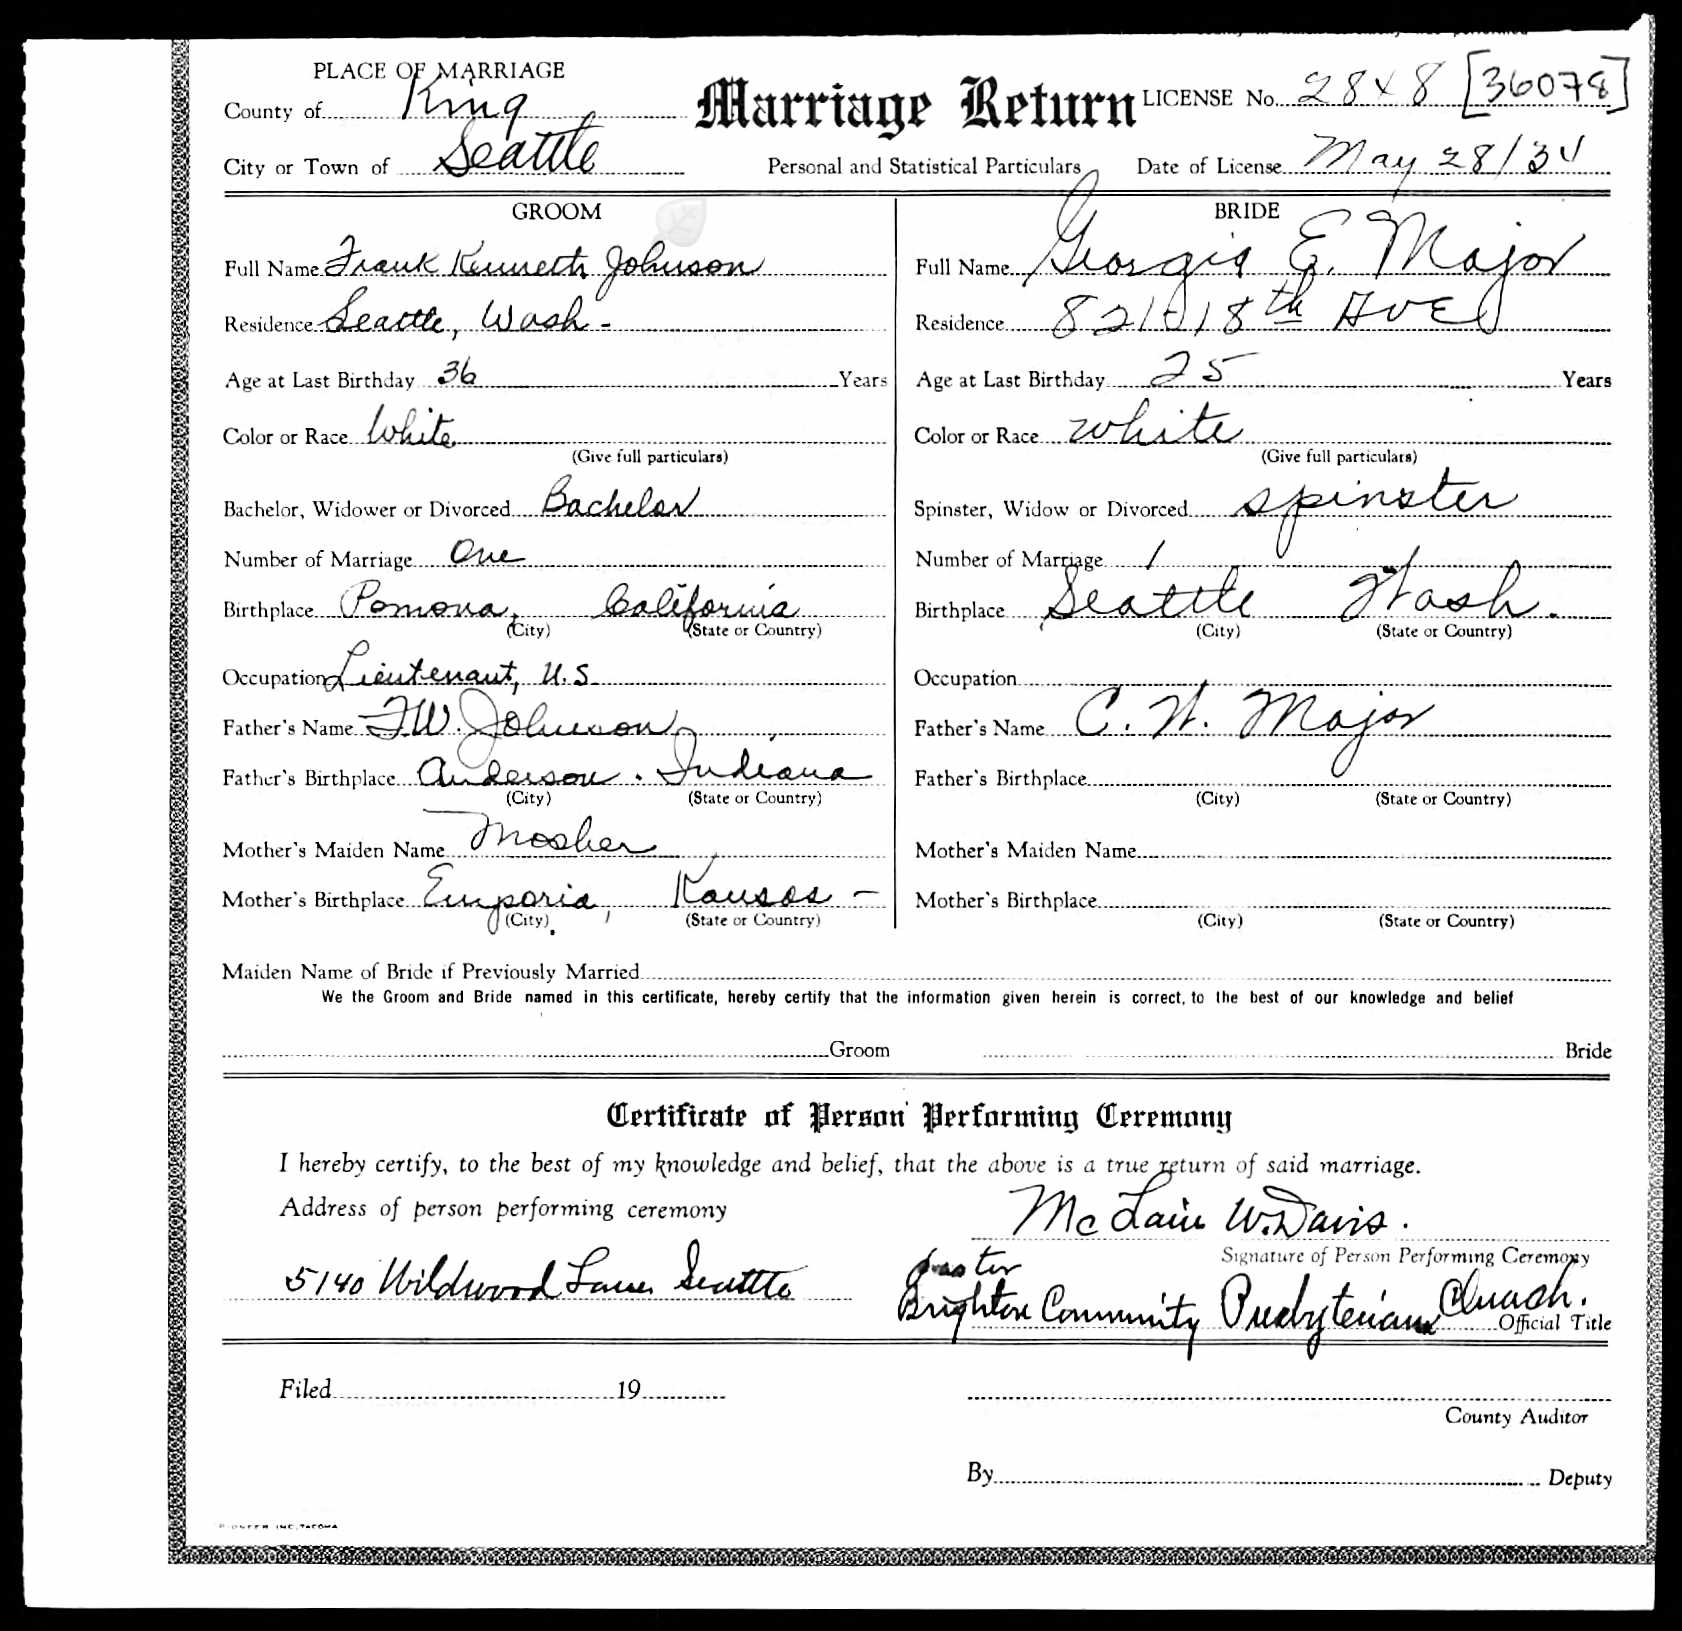 PLACE OF MARRIAGE
County of King
City or Town of Seattle
Marriage Return
Personal and Statistical Particulars
LICENSE No. 2848 [36078]
Date of License May 28/34
GROOM
Full Name Frank Kenneth Johnson
Residence Seattle, Wash -
Age at Last Birthday 36 Years
Color or Race White
(Give full particulars)
Bachelor, Widower or Divorced Bachelor
Number of Marriage One
Birthplace Pomona, California
(City) (State or Country)
Occupation Lieutenant, U.S
Father's Name F.W. Johnson
Father's Birthplace Anderson. Indiana
(City) (State or Country)
Mother's Maiden Name Mosher
Mother's Birthplace Emporia, Kansas -
(City) (State or Country)
BRIDE
Full Name Georgia E. Major
Residence 8210 18th Ave
Age at Last Birthday 25 Years
Color or Race white
(Give full particulars)
Spinster, Widow or Divorced spinster
Number of Marriage 1
Birthplace Seattle Wash.
(City) (State or Country)
Occupation
Father's Name C. W. Major
Father's Birthplace
(City) (State or Country)
Mother's Maiden Name
Mother's Birthplace
(City) (State or Country)
Maiden Name of Bride if Previously Married
We the Groom and Bride named in this certificate, hereby certify that the information given herein is correct, to the best of our knowledge and belief
Groom Bride
Certificate of Person Performing Ceremony
I hereby certify, to the best of my knowledge and belief, that the above is a true return of said marriage.
Address of person performing ceremony
5140 Wildwood Lane Seattle
McLain W. Davis.
Signature of Person Performing Ceremony
pastor
Brighton Community Presbyterian Church.
Official Title
Filed 19
County Auditor
By Deputy
PIONEER INC. TACOMA